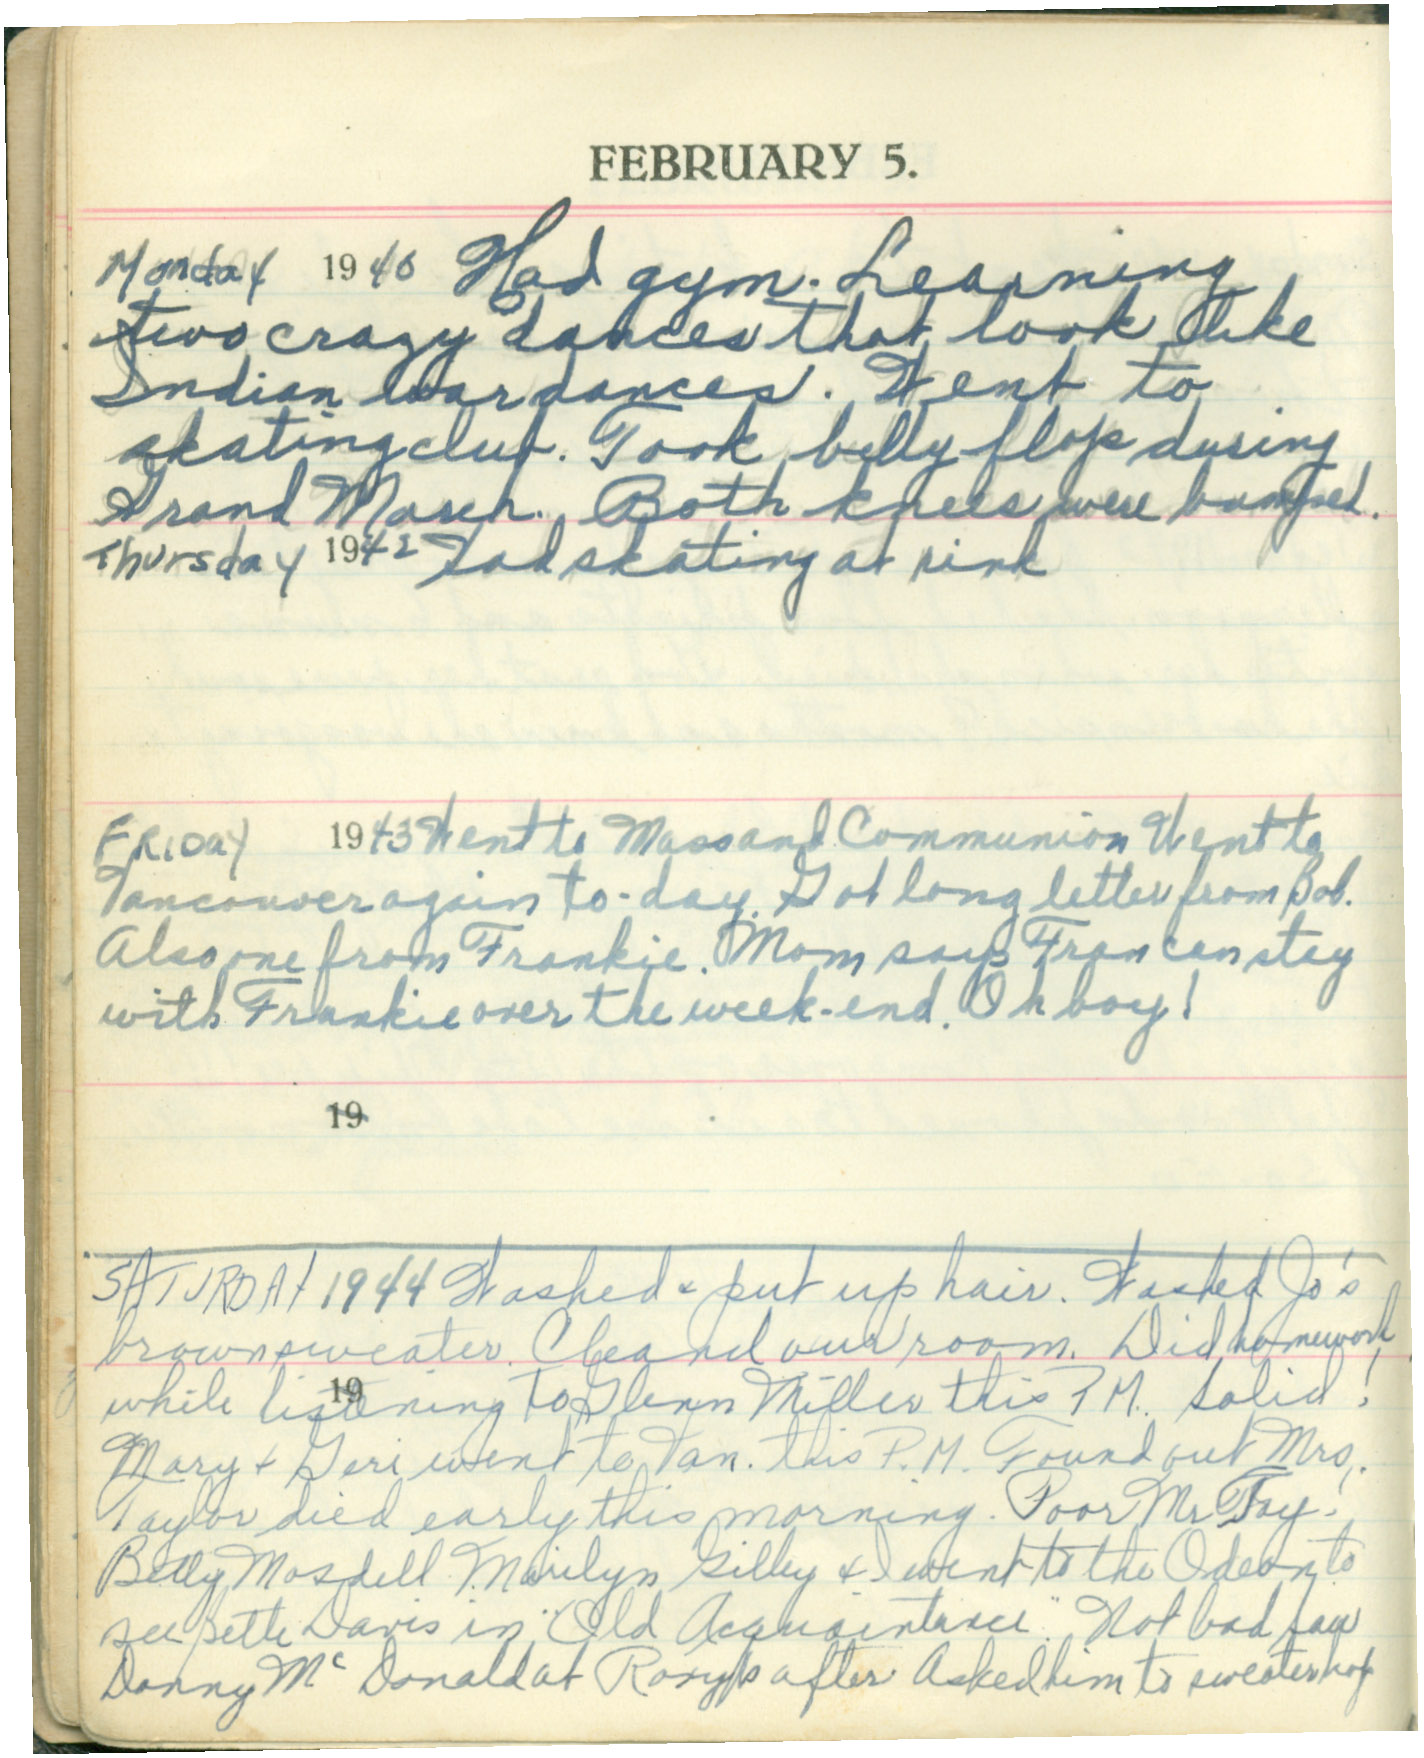 FEBRUARY 5.
Monday 1940 Had gym. Learning
two crazy dances that look like
Indian war dances. Went to
skating club. Took belly flop during
Grand March. Both knees were bumped.
Thursday 1942 Had skating at rink
FRIDAY 1943 Went to Mass and Communion Went to
Vancouver again to-day. Got long letter from Bob.
Also one from Frankie. Mom says Fran can stay
with Frankie over the week-end. Oh boy!
19
SATURDAY 1944 Washed & put up hair. Washed Jo's
brown sweater. Cleand our room. Did homework
19
while listening to Glenn Miller this P.M. Solid!
Mary & Geri went to Van. this P.M. Found out Mrs.
Taylor died early this morning. Poor Mr Tay!
Betty Mosdell Marilyn Gilley & I went to the Odeon to
see Bette Davis in "Old Acquaintance" Not bad saw
Danny Mc Donald at Roxy's after Asked him to sweater hop